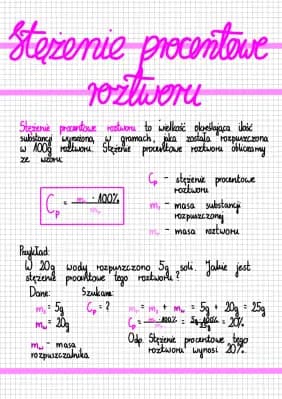 Stężenie procentowe
roztworu
Stężenie procentowe roztworu to wielkość określająca ilość
substancji wyrażoną w gramach, jaka została rozpuszczona
w 100g roztworu. Stężenie procentowe roztworu obliczamy
ze wzoru:
Cp = ms · 100% / mr
Cp - stężenie procentowe
roztworu
ms - masa substancji
rozpuszczonej
mr - masa roztworu
Przykład:
W 20g wody rozpuszczono 5g soli. Jakie jest
stężenie procentowe tego roztworu?
Dane: Szukane:
ms = 5g Cp = ? mr = ms + mw = 5g + 20g = 25g
mw = 20g Cp = ms · 100% / mr = 5g · 100% / 25g = 20%
mw - masa
rozpuszczalnika
Odp. Stężenie procentowe tego
roztworu wynosi 20%.